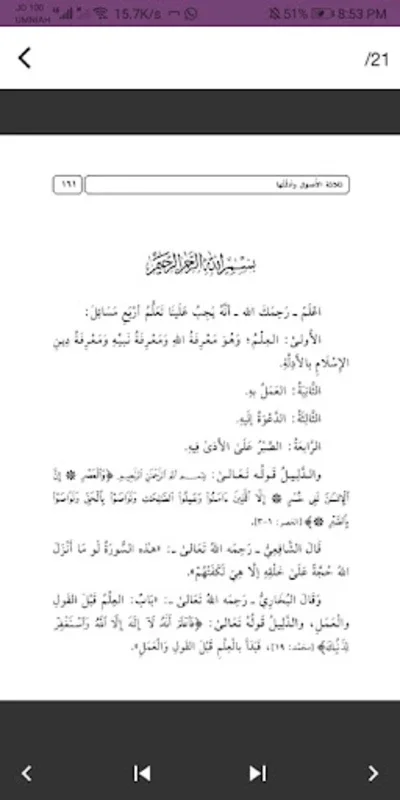 JO 100
UMNIAH
15.7K/s
51%
8:53 PM
/21
ثلاثة الأصول وأدلتها
١٦١
بِسْمِ اللَّهِ الرَّحْمَٰنِ الرَّحِيمِ
اعْلَمْ ـ رَحِمَكَ الله ـ أَنَّهُ يَجِبُ عَلَيْنَا تَعَلُّمُ أَرْبَعِ مَسَائِلَ:
الأُولَىٰ: العِلْمُ؛ وَهُوَ مَعْرِفَةُ اللهِ وَمَعْرِفَةُ نَبِيِّهِ وَمَعْرِفَةُ دِينِ
الإِسْلَامِ بِالأَدِلَّةِ.
الثَّانِيَةُ: العَمَلُ بِهِ.
الثَّالِثَةُ: الدَّعْوَةُ إِلَيْهِ.
الرَّابِعَةُ: الصَّبْرُ عَلَىٰ الأَذَىٰ فِيهِ.
والدَّلِيلُ قَوْلُهُ تَعَالَىٰ: بِسْمِ اللَّهِ الرَّحْمَٰنِ الرَّحِيمِ ﴿وَٱلْعَصْرِ ۞ إِنَّ
ٱلْإِنسَٰنَ لَفِى خُسْرٍ ۞ إِلَّا ٱلَّذِينَ ءَامَنُوا۟ وَعَمِلُوا۟ ٱلصَّٰلِحَٰتِ وَتَوَاصَوْا۟ بِٱلْحَقِّ وَتَوَاصَوْا۟
بِٱلصَّبْرِ ۞﴾ [العصر: ١-٣].
قَالَ الشَّافِعِيُّ ـ رَحِمَه اللهُ تَعَالَىٰ ـ: «هذه السُّورَةُ لَو مَا أَنْزَلَ
اللهُ حُجَّةً عَلَىٰ خَلْقِهِ إِلَّا هِيَ لَكَفَتْهُمْ».
وَقَالَ البُخَارِيُّ ـ رَحِمَه اللهُ تَعَالَىٰ ـ: «بَابٌ: العِلْمُ قَبْلَ القَولِ
والْعَمَلِ، والدَّلِيلُ قَوْلُهُ تَعَالَىٰ: ﴿فَٱعْلَمْ أَنَّهُۥ لَآ إِلَٰهَ إِلَّا ٱللَّهُ وَٱسْتَغْفِرْ
لِذَنۢبِكَ﴾ [محمد: ١٩]، فَبَدَأَ بِالْعِلْمِ قَبْلَ القَولِ وَالْعَمَلِ».